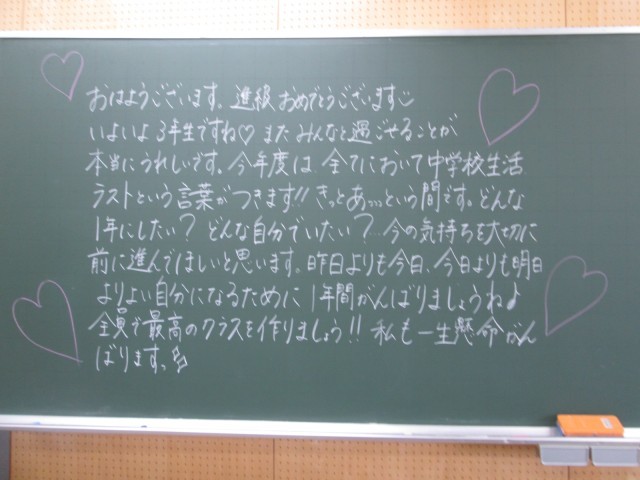 おはようございます。進級おめでとうございます
いよいよ3年生ですね♡ またみんなと過ごせることが
本当にうれしいです。今年度は、全てにおいて中学校生活
ラストという言葉がつきます!! きっとあっっっという間です。どんな
1年にしたい? どんな自分でいたい? 今の気持ちを大切に
前に進んでほしいと思います。昨日よりも今日、今日よりも明日
よりよい自分になるために1年間がんばりましょうね♪
全員で最高のクラスを作りましょう!! 私も一生懸命がん
ばります。